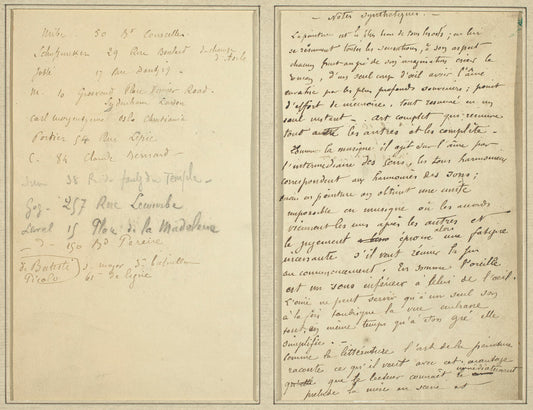 Mette 50 Bd Courcelles
Schuffenecker 29 Rue Boulard
17 Rue
M. 10 Grosvenor Place Road.
Sydenham London
Oslo Christiania
Portier 54 Rue Lepic
C. 84 Claude Bernard
38 R du faubg du Temple
257 Rue Lecourbe
Laval 15 Place de la Madeleine
150 Bd Pereire
de
major 5e
de ligne
— Notes Synthétiques. —
La peinture est le plus beau de tous les arts ; en lui
se résument toutes les sensations, à son aspect
chacun peut au gré de son imagination créer le
roman, d'un seul coup d'œil avoir l'âme
envahie par les plus profonds souvenirs ; point
d'effort de mémoire, tout résumé en un
seul instant. — Art complet qui résume
tous les autres et les complète. —
Comme la musique il agit sur l'âme par
l'intermédiaire des sens, les tons harmonieux
correspondant aux harmonies des sons ;
mais en peinture on obtient une unité
impossible en musique où les accords
viennent les uns après les autres et
le jugement éprouve alors une fatigue
incessante s'il veut réunir la fin
au commencement. En somme l'oreille
est un sens inférieur à celui de l'œil.
L'ouïe ne peut servir qu'à un seul son
à la fois tandis que la vue embrasse
tout, en même temps qu'à son gré elle
simplifie. —
Comme la littérature l'art de la peinture
raconte ce qu'il veut avec cet avantage
que le lecteur connaît immédiatement
prélude la mise en scène et